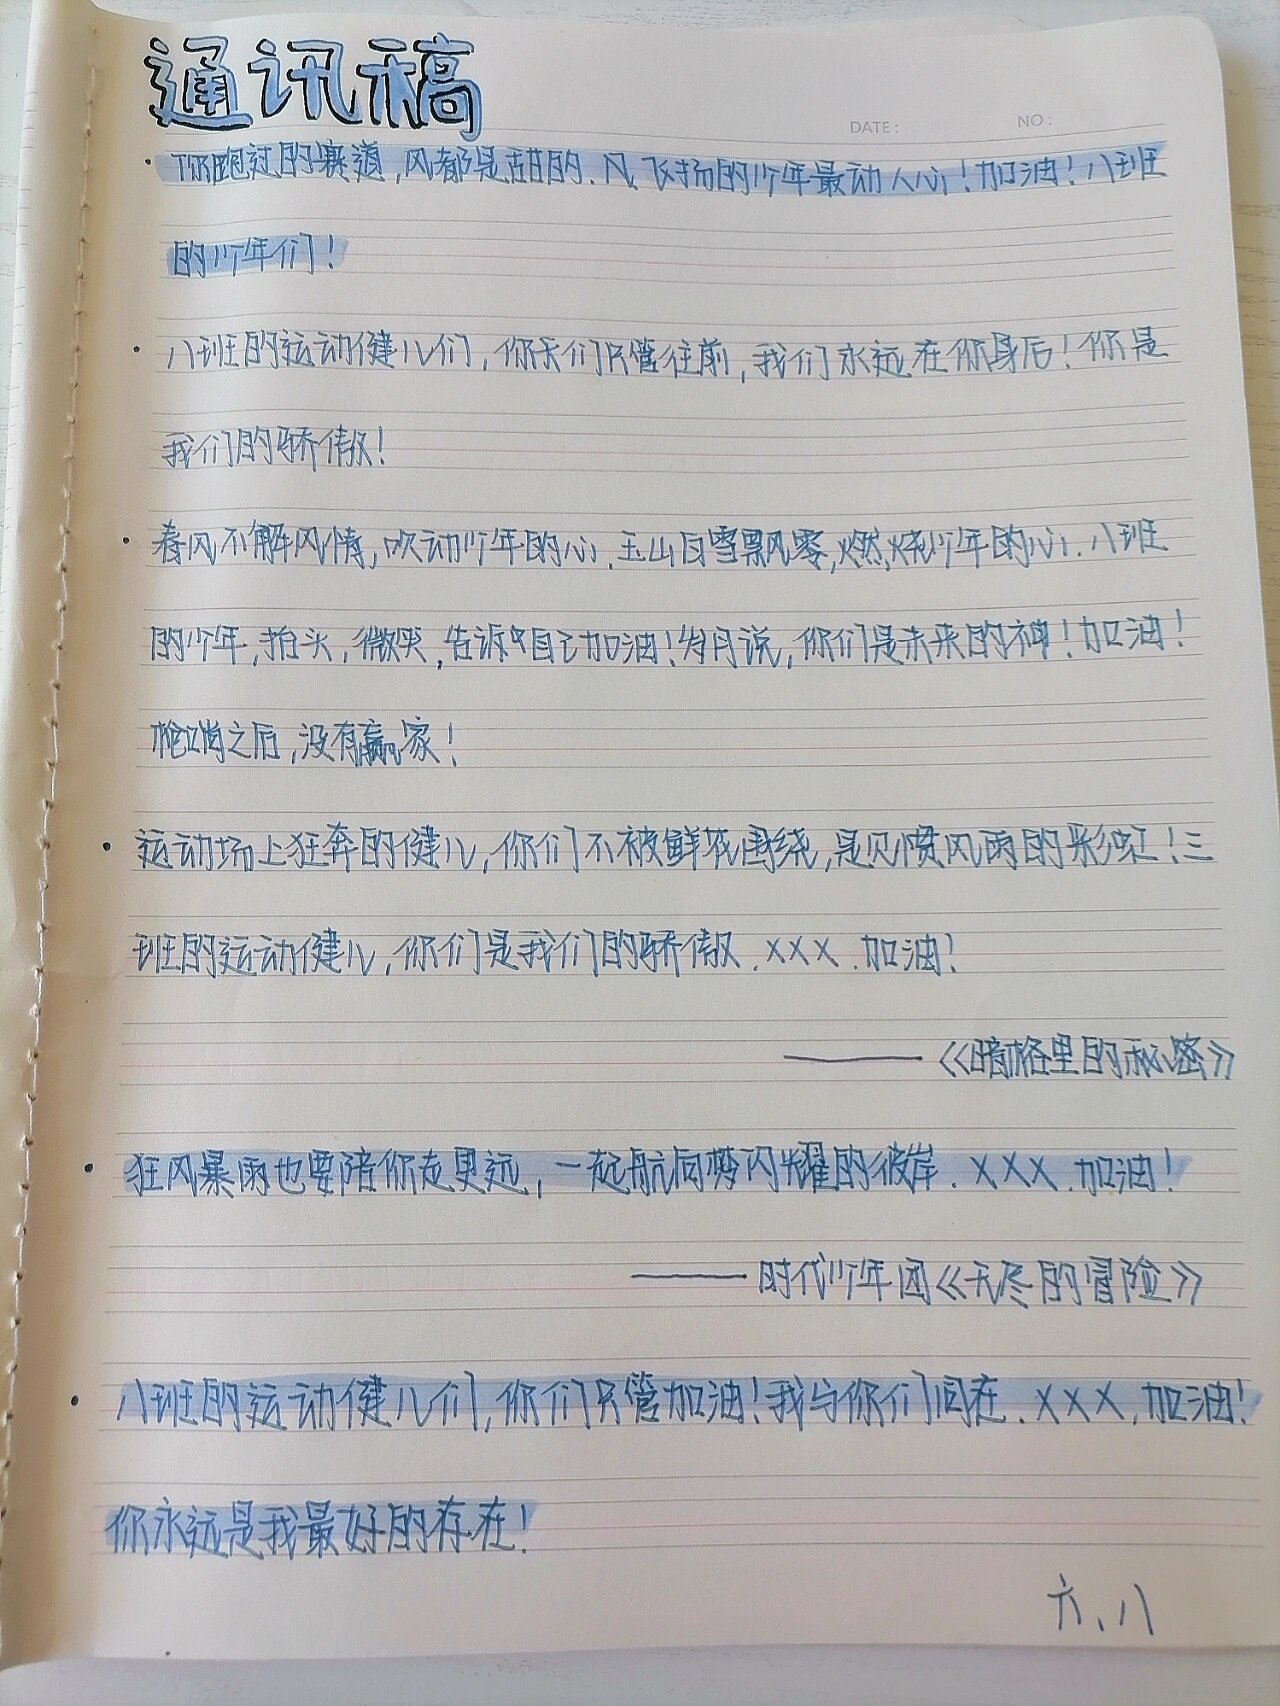 通讯稿
DATE:
NO:
·你跑过的赛道,风都是甜的.风飞扬的少年最动人心!加油!八班
的少年们!
·八班的运动健儿们,你们只管往前,我们永远在你身后!你是
我们的骄傲!
·春风不解风情,吹动少年的心.玉山白雪飘零,燃烧少年的心.八班
的少年,抬头,微笑,告诉自己加油!岁月说,你们是未来的神!加油!
枪响之后,没有赢家!
·运动场上狂奔的健儿,你们不被鲜花围绕,是见惯风雨的彩虹!三
班的运动健儿,你们是我们的骄傲.XXX.加油!
——《暗格里的秘密》
·狂风暴雨也要陪你走更远,一起航向梦闪耀的彼岸.XXX.加油!
——时代少年团《无尽的冒险》
·八班的运动健儿们,你们只管加油!我与你们同在.XXX,加油!
你永远是我最好的存在!
六、八